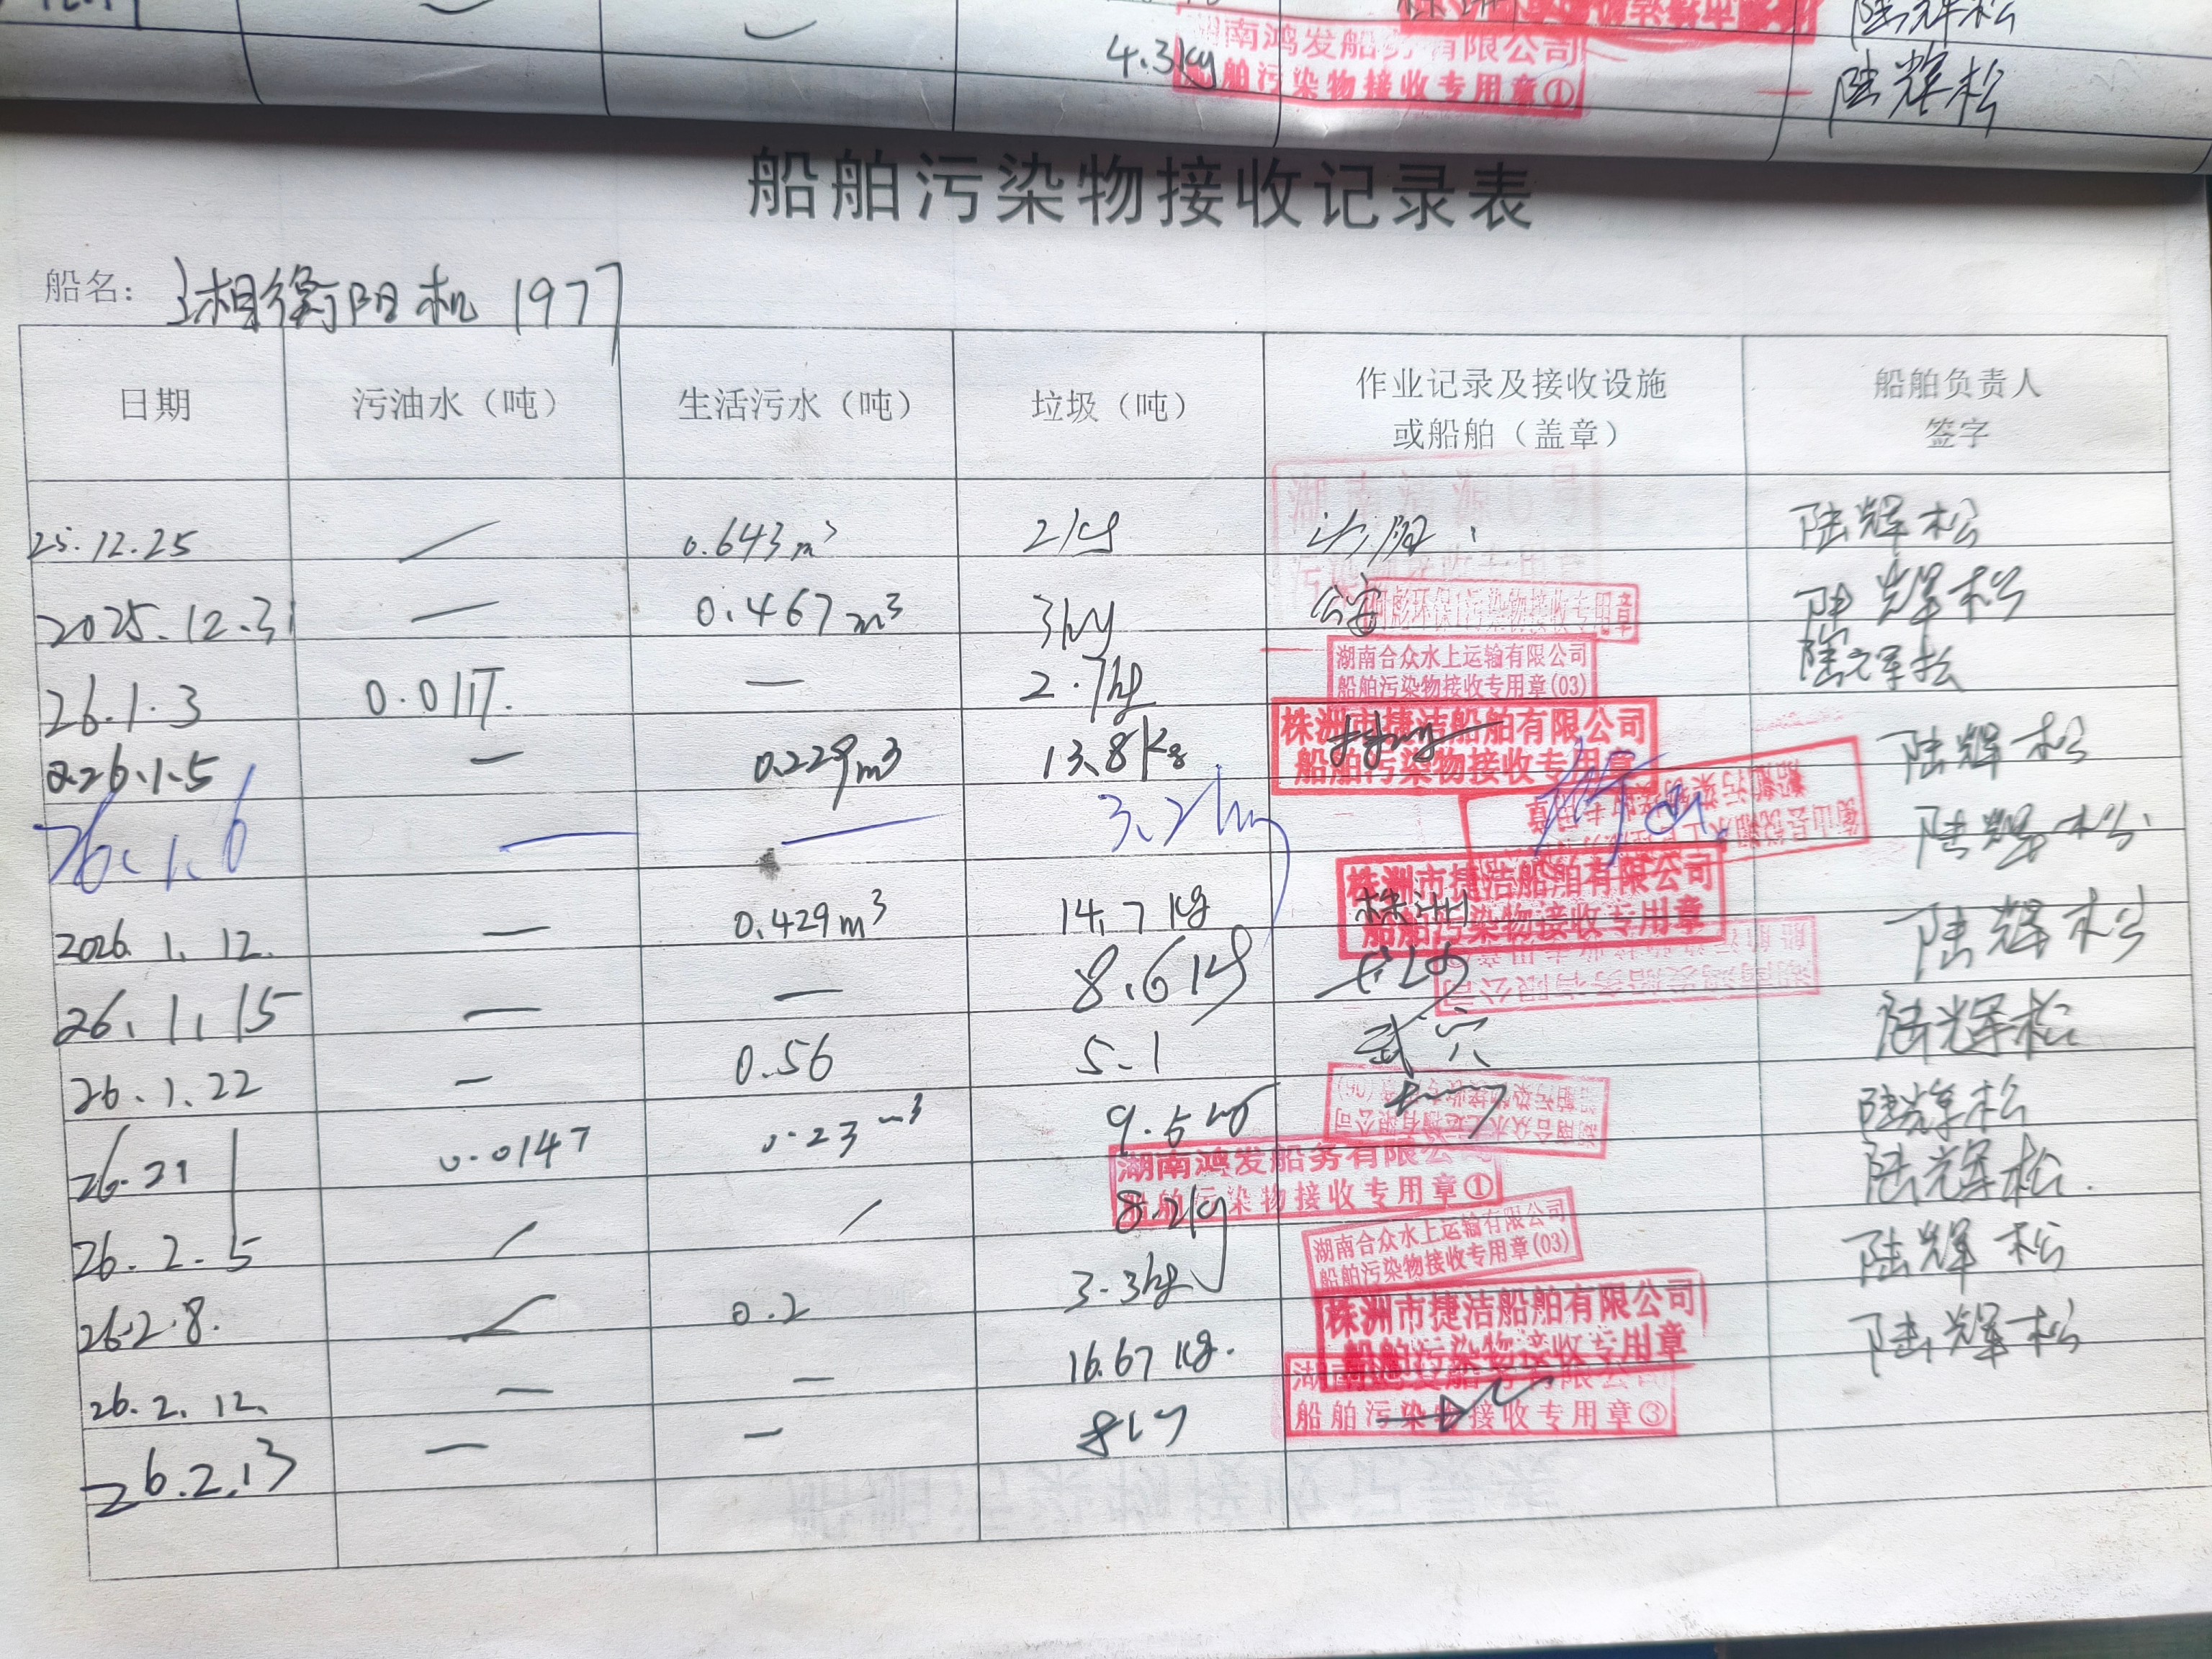 4.3kg 湖南鸿发船务有限公司 陆辉松
船舶污染物接收专用章① 陆辉松
船舶污染物接收记录表
船名: 湘衡阳机 1977
日期 污油水（吨） 生活污水（吨） 垃圾（吨） 作业记录及接收设施或船舶（盖章） 船舶负责人签字
25.12.25 / 0.643m³ 2kg 陆辉松
2025.12.31 — 0.467m³ 3kg 污染物接收专用章 陆辉松
26.1.3 0.01T. — 2.7kg 湖南合众水上运输有限公司 船舶污染物接收专用章(03) 陆辉松
026.1.5 — 0.229m³ 13.8Kg 株洲市捷洁船舶有限公司 船舶污染物接收专用章 陆辉松
26.1.6 — — 3.2kg 陆辉松
2026.1.12. — 0.429m³ 14.7Kg 株洲 株洲市捷洁船舶有限公司 船舶污染物接收专用章 陆辉松
26.1.15 — — 8.6kg 长沙 陆辉松
26.1.22 — 0.56 5.1 武穴 陆辉松
26.1 0.014T 0.23m³ 陆辉松
湖南鸿发船务有限公司
船舶污染物接收专用章①
26.2.5 / / 8.2kg 陆辉松
26.2.8. / 0.2 3.3kg 湖南合众水上运输有限公司 船舶污染物接收专用章(03) 陆辉松
26.2.12. — — 16.67Kg. 株洲市捷洁船舶有限公司 船舶污染物接收专用章
26.2.13 — — 8kg 船舶污染物接收专用章③